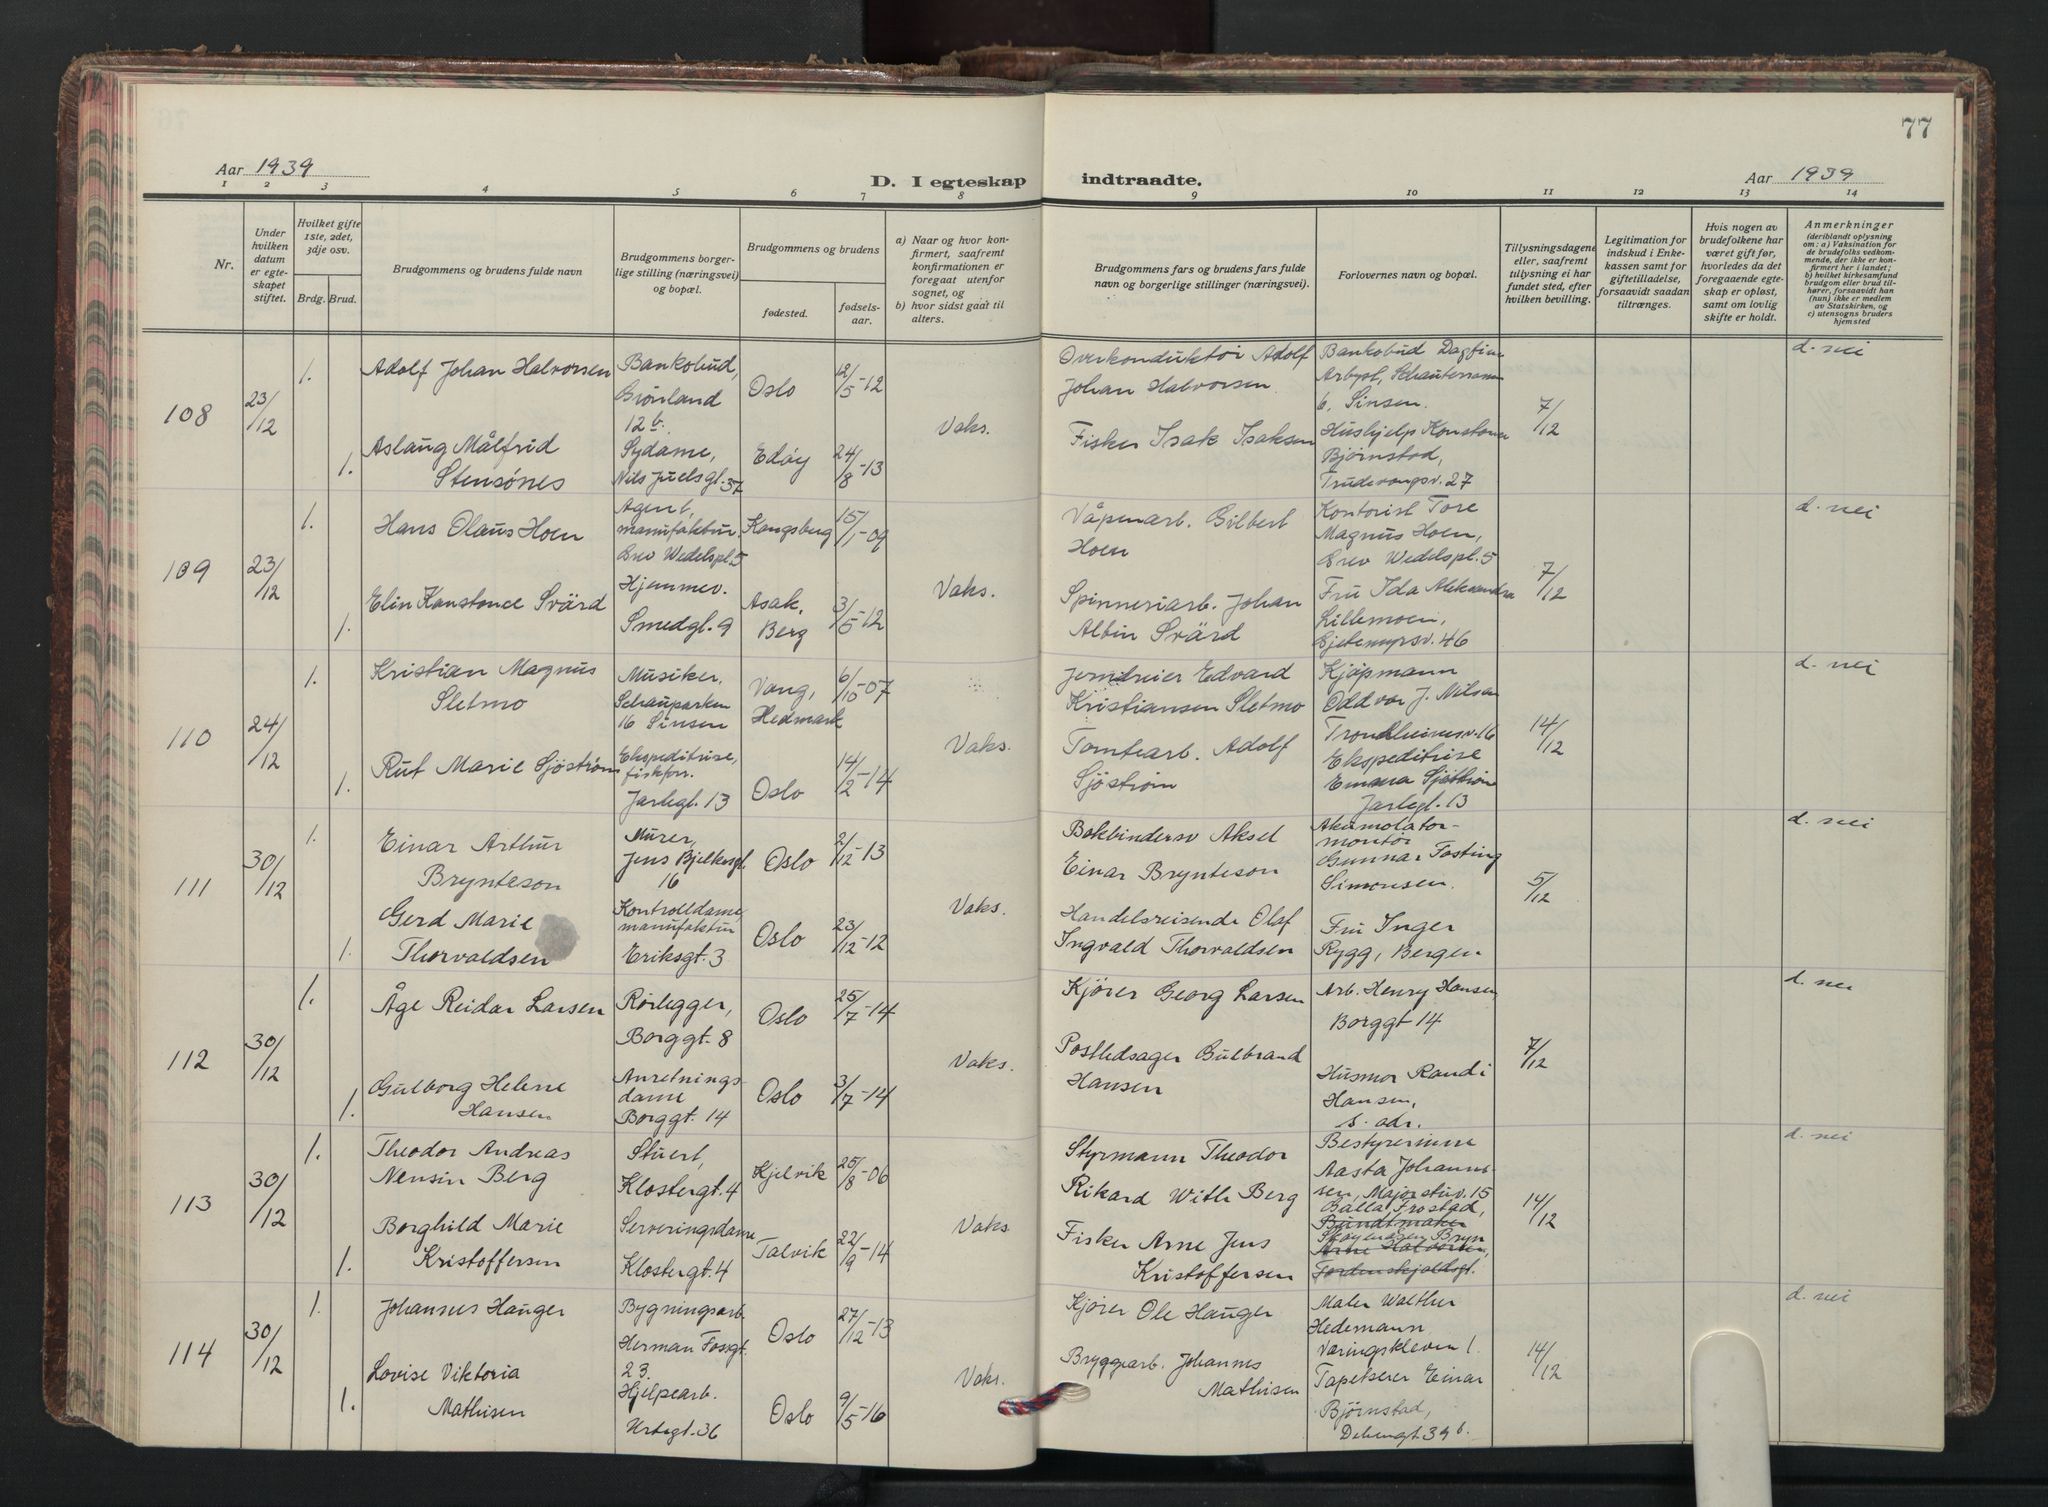 77
Aar 1939
D. I egteskap indtraadte.
Aar 1939
1 2 3 4 5 6 7 8 9 10 11 12 13 14
Nr.
Under hvilken datum er egteskapet stiftet.
Hvilket gifte 1ste, 2det, 3dje osv.
Brdg. Brud.
Brudgommens og brudens fulde navn
Brudgommens borgerlige stilling (næringsvei) og bopæl.
Brudgommens og brudens
fødested.
fødselsaar.
a) Naar og hvor konfirmert, saafremt konfirmationen er foregaat utenfor sognet, og
b) hvor sidst gaat til alters.
Brudgommens fars og brudens fars fulde navn og borgerlige stillinger (næringsvei).
Forlovernes navn og bopæl.
Tillysningsdagene eller, saafremt tillysning ei har fundet sted, efter hvilken bevilling.
Legitimation for indskud i Enkekassen samt for giftetilladelse, forsaavidt saadan tiltrænges.
Hvis nogen av brudefolkene har været gift før, hvorledes da det foregaaende egteskap er opløst, samt om lovlig skifte er holdt.
Anmerkninger
(deriblandt oplysning om: a) Vaksination for de brudefolks vedkommende, der ikke er konfirmert her i landet; b) hvilket kirkesamfund brudgom eller brud tilhører, forsaavidt han (hun) ikke er medlem av Statskirken, og c) utensogns bruders hjemsted
108
23/12
1.
Adolf Johan Halvorsen
Bankobud,
Grönland
12 b.
Oslo
12/5-12
Vaks.
Overkonduktör Adolf
Johan Halvorsen
Bankobud Dagfinn
6, Sinsen.
7/12
d. nei
1.
Aslaug Målfrid
Stensönes
Sydame,
Nils Juelsgt. 37
Edöy
24/8-13
Fisker Isak Isaksen
Hushjelp Konstanse
Björnstad,
Trudvangsv. 27
109
23/12
1.
Hans Olaus Hoen
Agent,
manufaktur
Grev Wedelspl. 5
Kongsberg
15/1-09
Vaks.
Våpenarb. Gilbert
Hoen
Kontorist Tore
Magnus Hoen,
Grev Wedelspl. 5
7/12
d. nei
1.
Elin Konstance Svärd
Hjemmev.
Smedgt. 9
Asak,
Berg
3/5-12
Spinneriarb. Johan
Albin Svärd
Fru Ida Aleksandra
Lillemoen,
Gjetemyrsv. 46
110
24/12
1.
Kristian Magnus
Sletmo
Musiker,
Schouparken
16 Sinsen
Vang,
Hedmark
6/10-07
Vaks.
Jerndreier Edvard
Kristiansen Sletmo
Kjöpmann
Oddvar J. Nilsen
Trondheimsv. 16
14/12
d. nei
1.
Rut Marie Sjöström
Ekspeditrise,
fiskforr.
Jarlegt. 13
Oslo
14/2-14
Tomtearb. Adolf
Sjöström
Ekspeditrise
Emma Sjöström
Jarlegt. 13
111
30/12
1.
Einar Arthur
Brynteson
Murer,
Jens Bjelkesgt.
16
Oslo
2/12-13
Vaks.
Bokbindersv Aksel
Einar Brynteson
Akumolator-
montör
Gunnar Fosting
Simonsen.
5/12
d. nei
1.
Gerd Marie
Thorvaldsen
Kontrolldame
manufaktur
Eriksgt. 3
Oslo
23/12-12
Handelsreisende Olaf
Ingvald Thorvaldsen
Fru Inger
Rygg, Bergen
112
30/12
1.
Åge Reidar Larsen
Rörlegger,
Borggt. 8
Oslo
25/7-14
Vaks.
Kjörer Georg Larsen
Arb. Henry Hansen
Borggt 14
7/12
d. nei
1.
Gulborg Helene
Hansen
Anretnings-
dame
Borggt. 14
Oslo
3/7-14
Postledsager Gulbrand
Hansen
Husmor Randi
Hansen,
s. adr.
113
30/12
1.
Theodor Andreas
Nensin Berg
Stuert,
Klostergt. 4
Kjelvik
25/8-06
Vaks
Styrmann Theodor
Rikard With Berg
Bestyrerinne
Aasta Johanne-
sen, Majorstuv. 15
14/12
d. nei
1.
Borghild Marie
Kristoffersen
Serveringsdame
Klostergt. 4
Talvik
22/9-14
Fisker Arne Jens
Kristoffersen
Balla Frostad,
Buntmaker
Bryn
Arne Halvorsen,
Tordenskjoldsgt.
114
30/12
1.
Johannes Hauger
Bygningsarb.
Herman Fossgt.
23.
Oslo
27/12-13
Vaks.
Kjörer Ole Hauger
Maler Walther
Hedemann
Væringskleven 1.
14/12
d. nei
1.
Lovise Viktoria
Mathisen
Hjelpearb.
Urtegt. 36
Oslo
9/5-16
Bryggearb. Johannes
Mathisen
Tapetserer Einar
Björnstad,
Dehengt. 39 b.